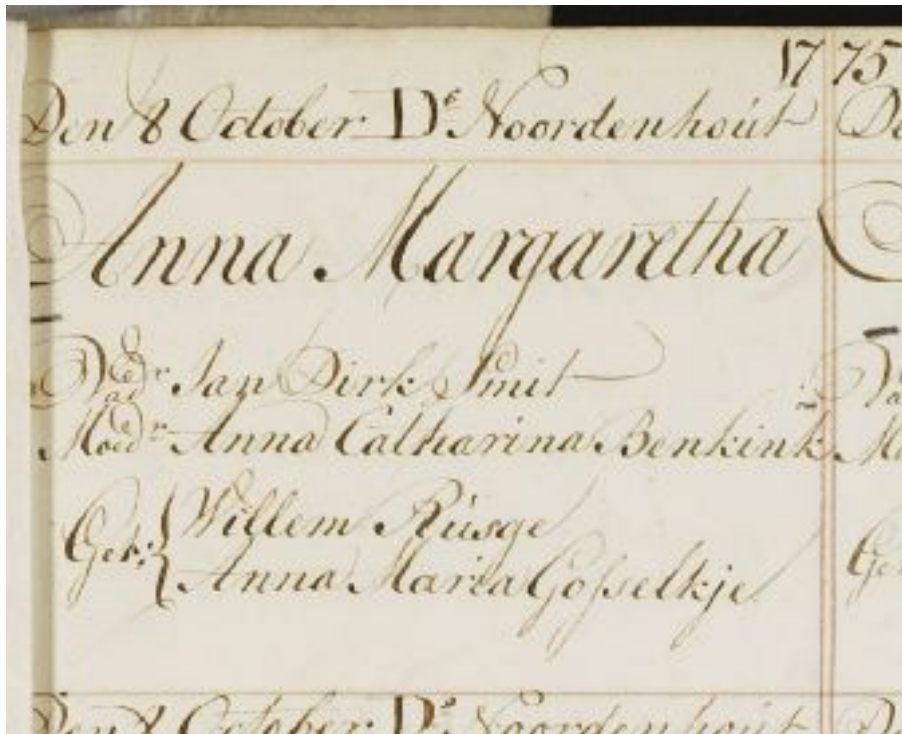 1775
Den 8 October Dᵉ. Noordenhoút
Anna Margaretha
Vadʳ. Jan Dirk Smit
Moedʳ. Anna Catharina Benkink
Get: Willem Rúsge
Anna Maria Gosselkje
Den 8 October Dᵉ. Noordenhoút